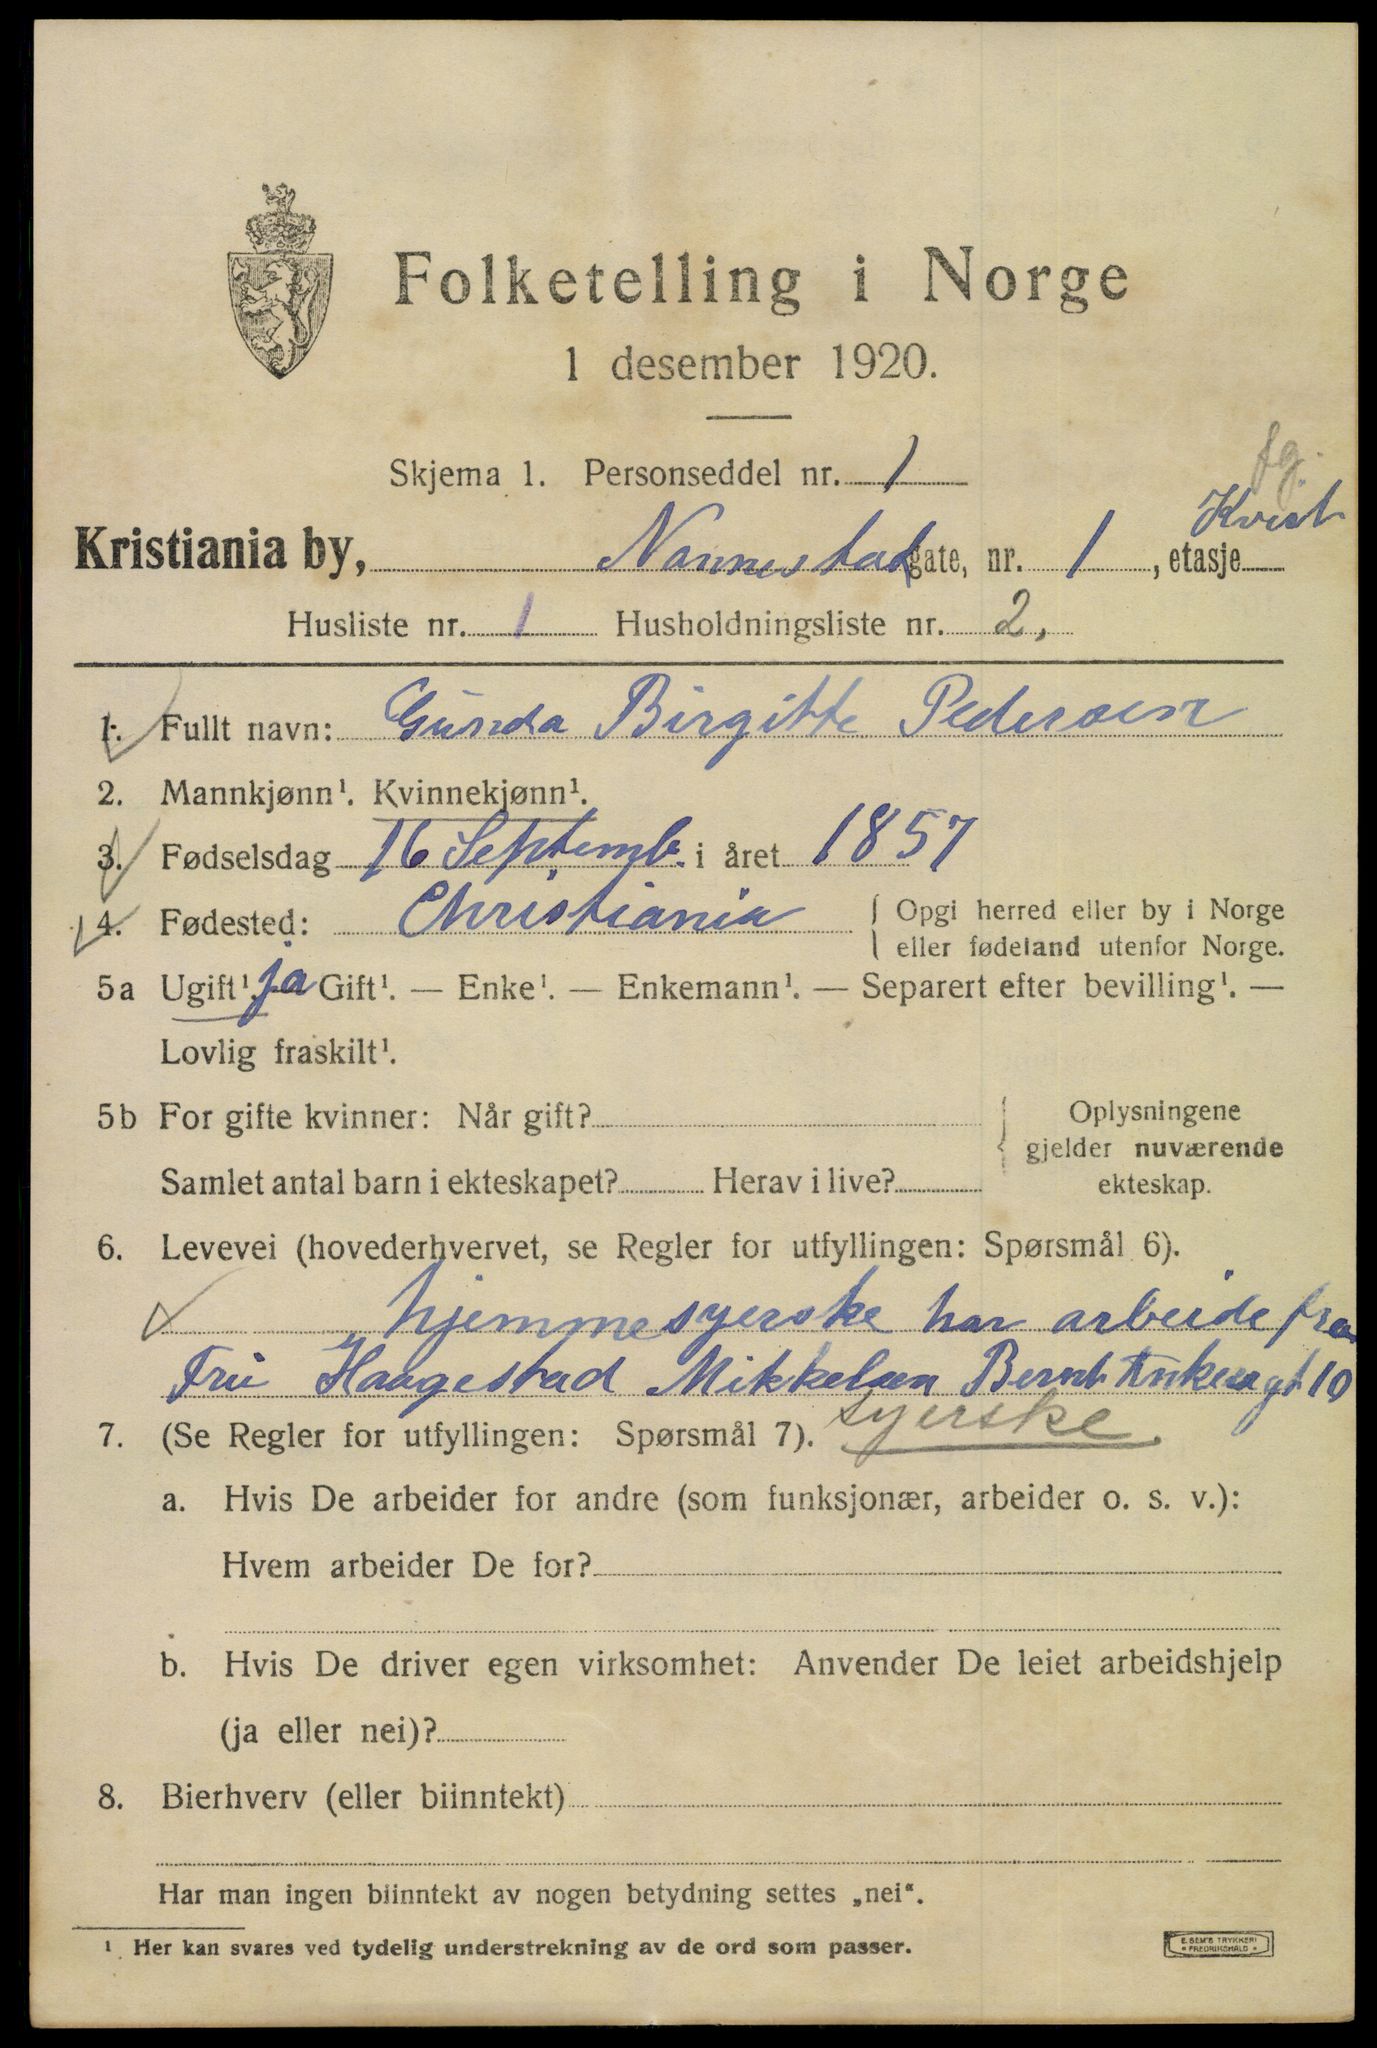 Folketelling i Norge
1 desember 1920.
Skjema 1. Personseddel nr. 1
fg.
Kvist
Kristiania by, Nannestadgate, nr. 1, etasje
Husliste nr. 1 Husholdningsliste nr. 2,
1. Fullt navn: Gunda Birgitte Pedersen
2. Mannkjønn¹. Kvinnekjønn¹.
3. Fødselsdag 16 Septemb. i året 1857
4. Fødested: Christiania { Opgi herred eller by i Norge
eller fødeland utenfor Norge.
5a Ugift¹. ja Gift¹. — Enke¹. — Enkemann¹. — Separert efter bevilling¹. —
Lovlig fraskilt¹.
5b For gifte kvinner: Når gift? Oplysningene
gjelder nuværende
Samlet antal barn i ekteskapet? Herav i live? ekteskap.
6. Levevei (hovederhvervet, se Regler for utfyllingen: Spørsmål 6).
hjemmesyerske har arbeide fra
Fru Haagestad Mikkelsen Bernt Ankers gt 10
7. (Se Regler for utfyllingen: Spørsmål 7). syerske
a. Hvis De arbeider for andre (som funksjonær, arbeider o. s. v.):
Hvem arbeider De for?
b. Hvis De driver egen virksomhet: Anvender De leiet arbeidshjelp
(ja eller nei)?
8. Bierhverv (eller biinntekt)
Har man ingen biinntekt av nogen betydning settes „nei“.
¹ Her kan svares ved tydelig understrekning av de ord som passer.
E. SEM'S TRYKKERI
FREDRIKSHALD